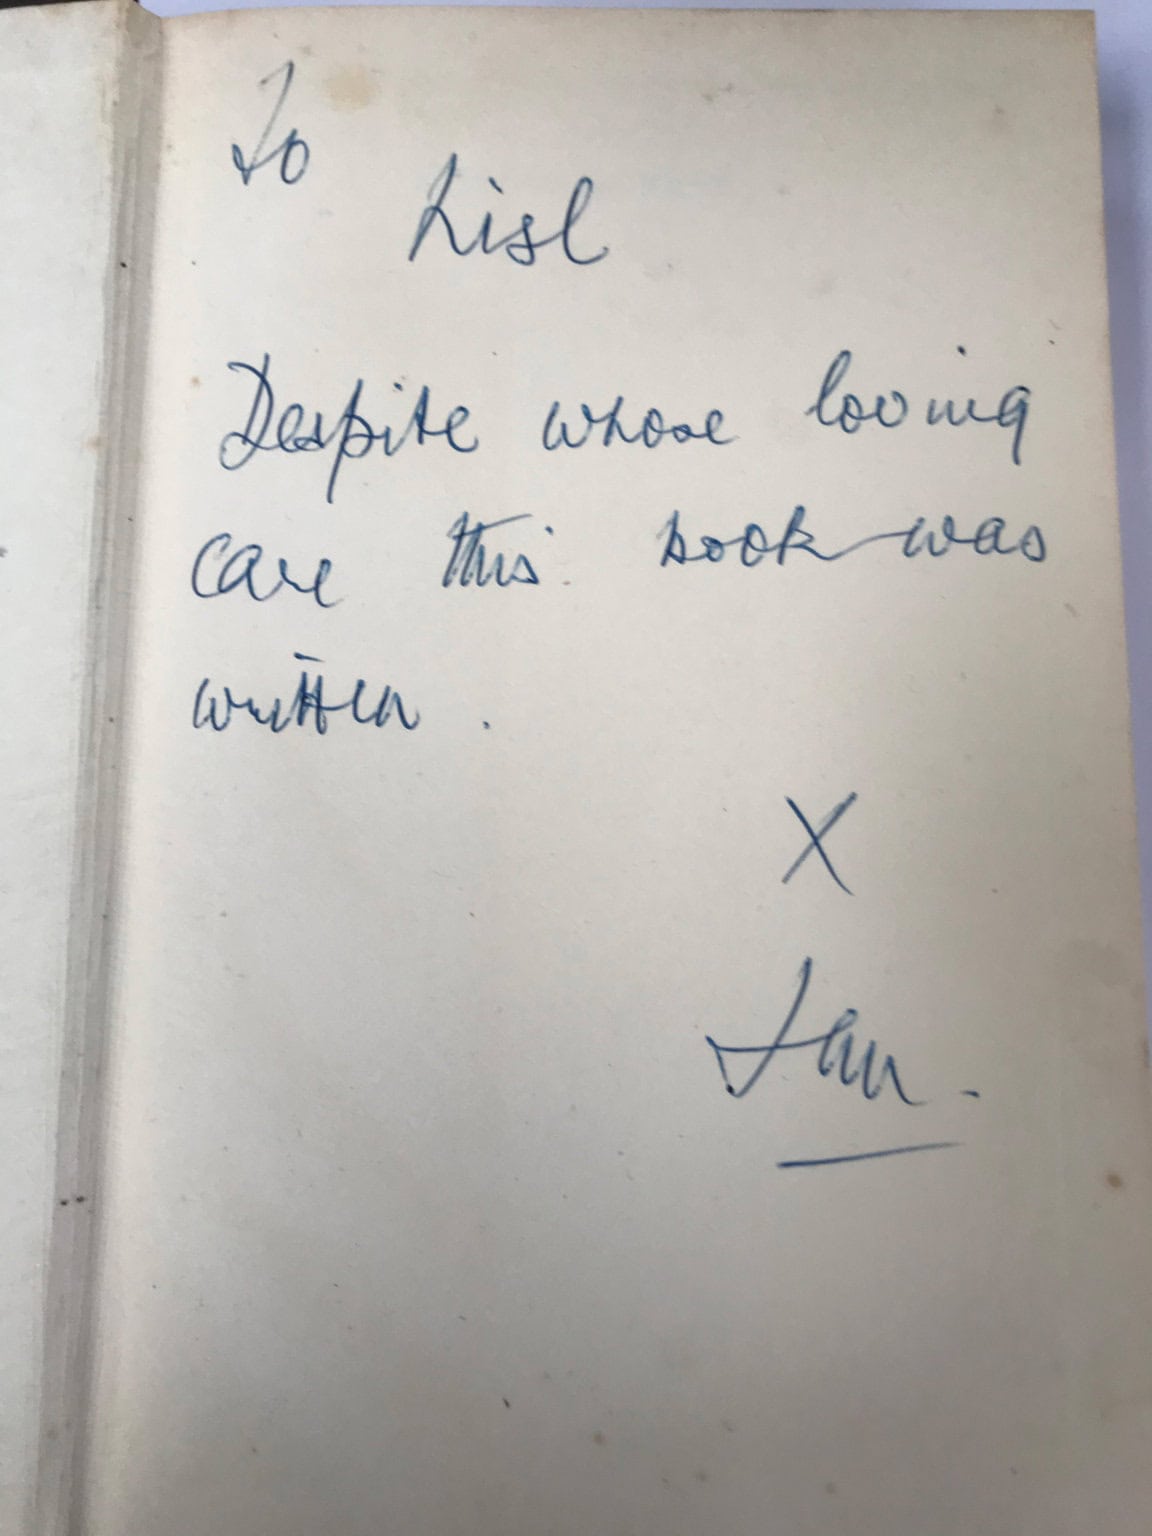 To
Lisl
Despite whose loving
care this book was
written.
X
Ian.